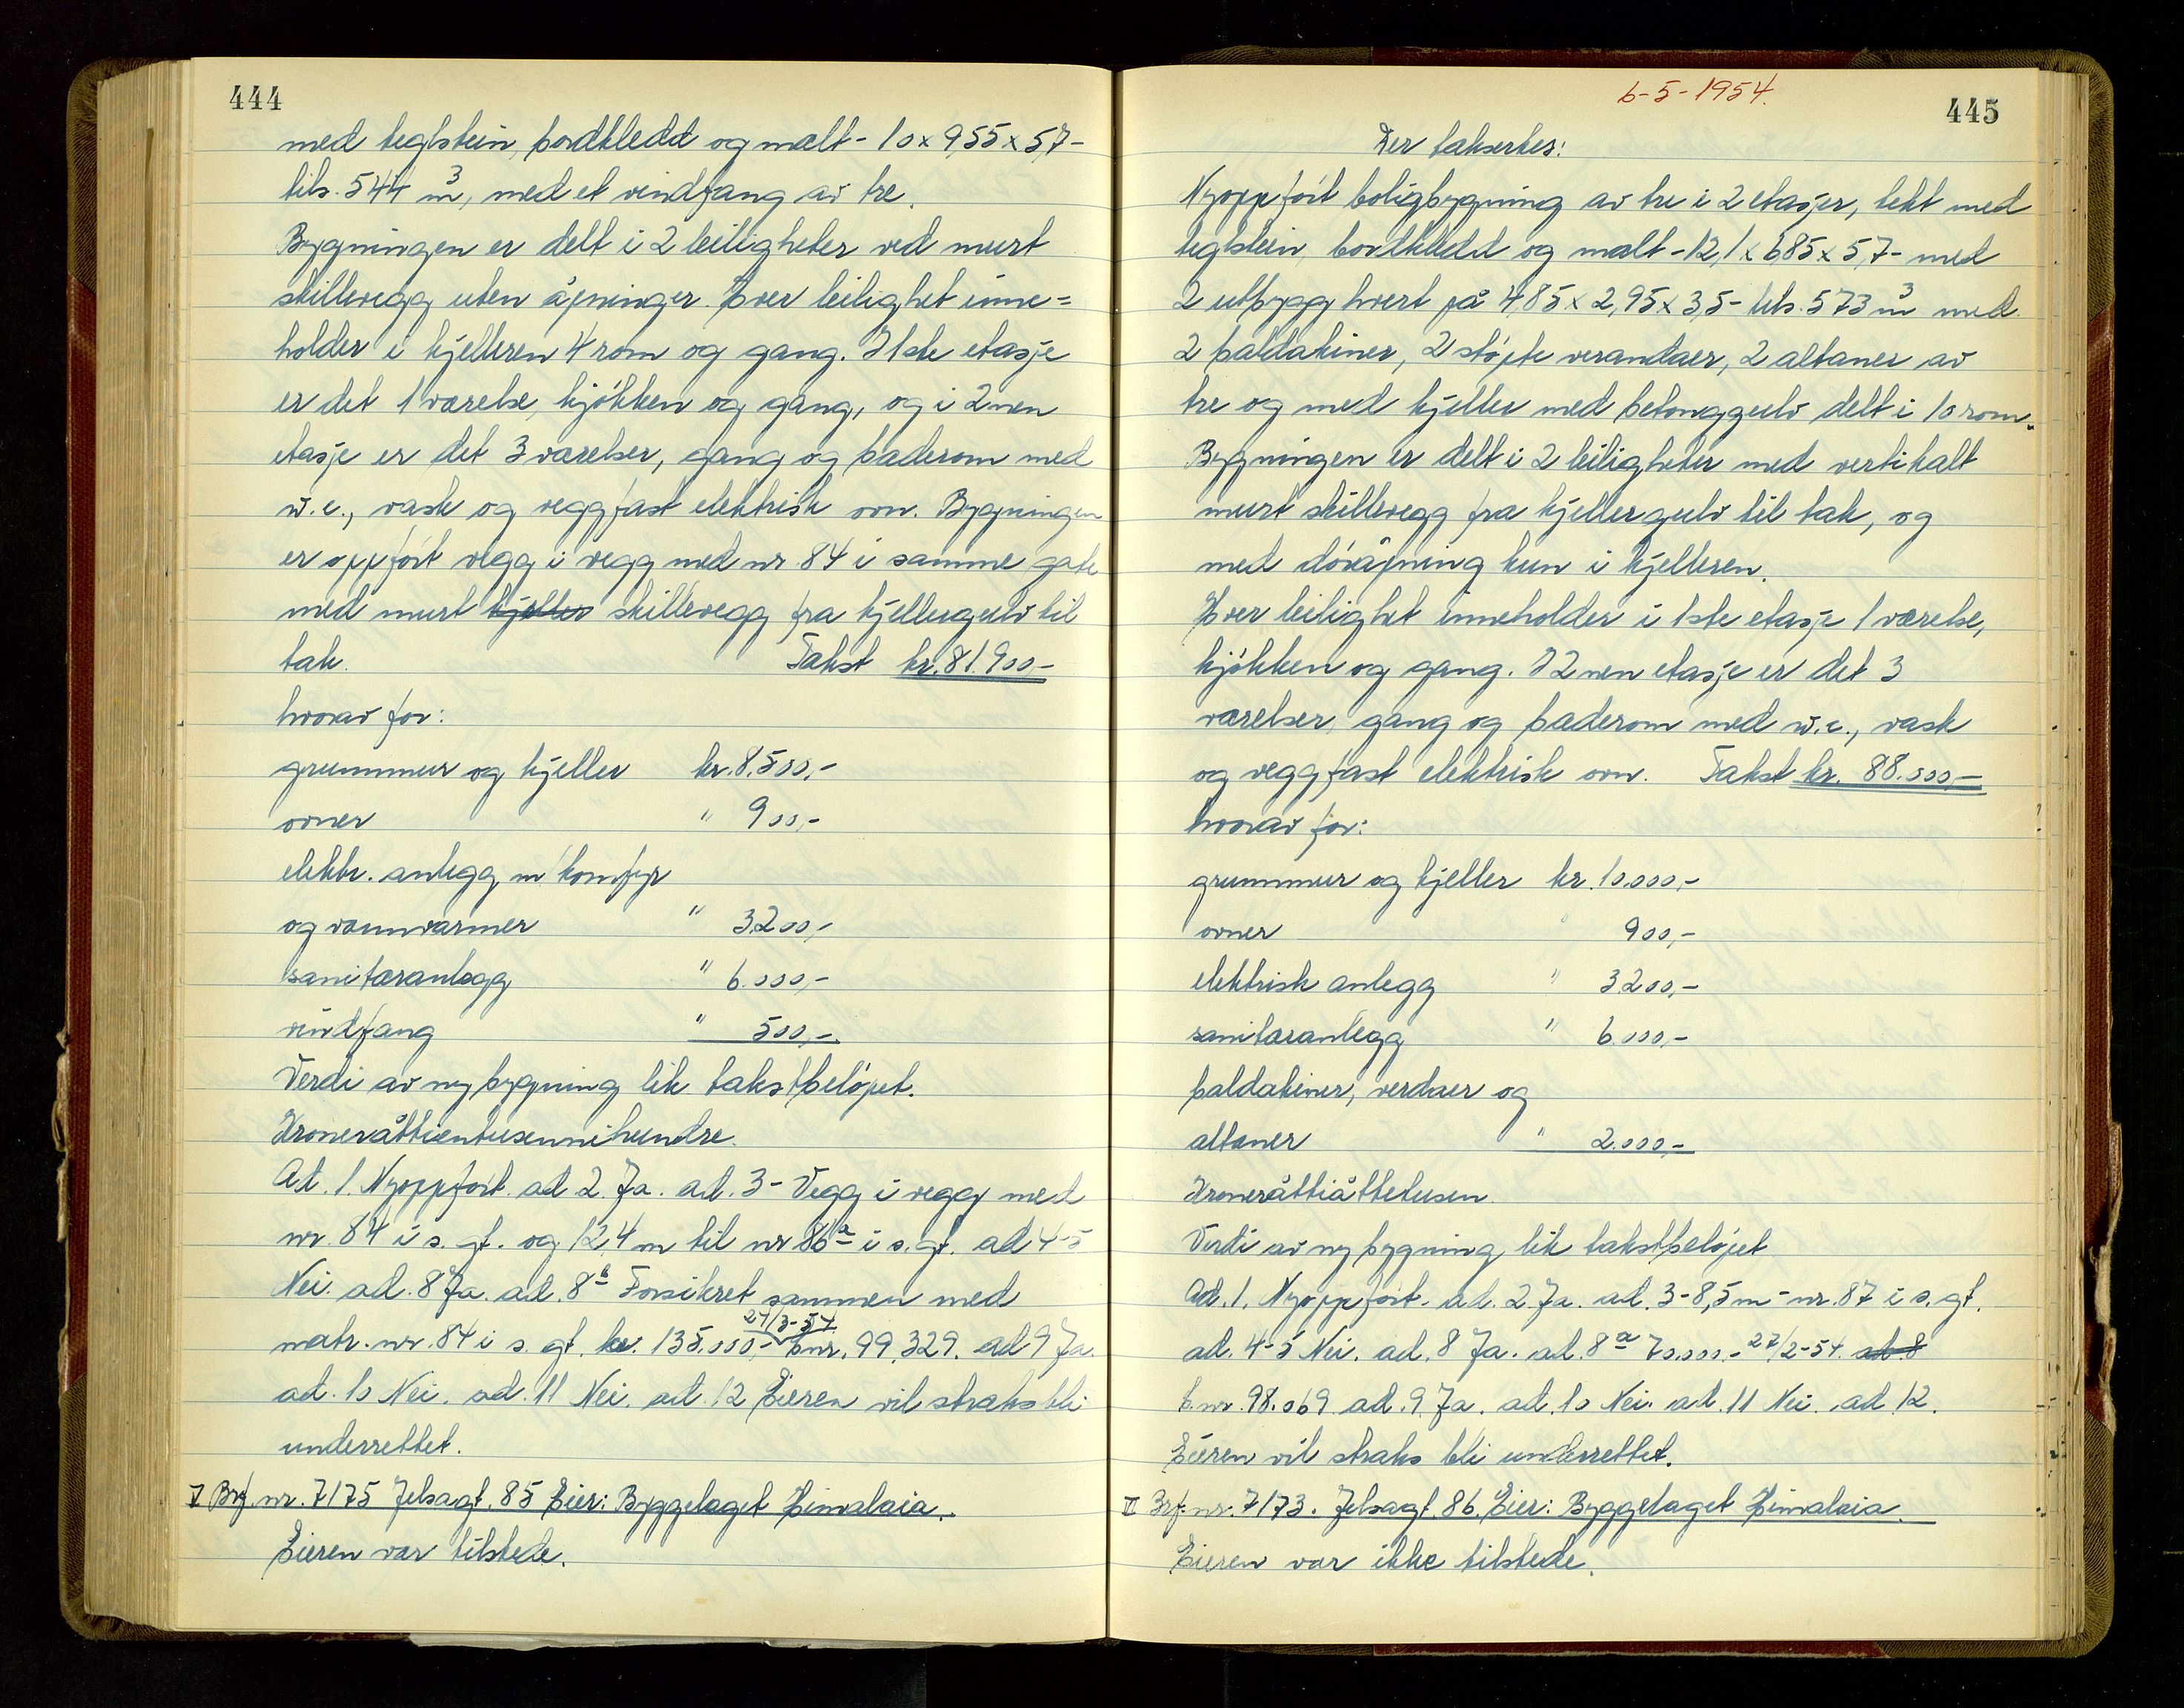 444
med teglstein, bordkledd og malt - 10 x 9,55 x 5,7 -
tils. 544 m³, med et vindfang av tre.
Bygningen er delt i 2 leiligheter ved murt
skillevegg uten åpninger. Hver leilighet inne=
holder i kjelleren 4 rom og gang. I 1ste etasje
er det 1 værelse, kjøkken og gang, og i 2nen
etasje er det 3 værelser, gang og baderom med
w.c., vask og veggfast elektrisk ovn. Bygningen
er oppført vegg i vegg med nr. 84 i samme gate
med murt kjeller skillevegg fra kjellergulv til
tak. Takst kr. 81.900,-
hvorav for:
grunnmur og kjeller kr. 8.500,-
ovner " 900,-
elektr. anlegg m/komfyr
og vannvarmer " 3200,-
sanitæranlegg " 6.000,-
vindfang " 500,-
Verdi av ny bygning lik takstbeløpet.
Kroneråttientusennihundre.
Ad. 1. Nyoppført. ad 2. Ja. ad. 3 - Vegg i vegg med
nr. 84 i s. gt. og 12,4 m til nr 86a i s. gt. ad 4-5
Nei. ad. 8 Ja. ad. 8b Forsikret sammen med
27/3-54
matr. nr. 84 i s. gt. kr. 135.000,- bnr. 99.329. ad 9 Ja.
ad. 10 Nei. ad. 11 Nei. ad. 12 Eieren vil straks bli
underrettet.
V Brf. nr. 7175 Jelsagt. 85 Eier: Byggelaget Himalaia.
Eieren var tilstede.
6-5-1954.
445
Der taksertes:
Nyoppført boligbygning av tre i 2 etasjer, tekt med
teglstein, bordkledd og malt - 12,1 x 6,85 x 5,7 - med
2 utbygg hvert på 4,85 x 2,95 x 3,5 - tils. 573 m³ med
2 baldakiner, 2 støpte verandaer, 2 altaner av
tre og med kjeller med betonggulv delt i 10 rom.
Bygningen er delt i 2 leiligheter med vertikalt
murt skillevegg fra kjellergulv til tak, og
med døråpning kun i kjelleren.
Hver leilighet inneholder i 1ste etasje 1 værelse,
kjøkken og gang. I 2nen etasje er det 3
værelser, gang og baderom med w.c., vask
og veggfast elektrisk ovn. Takst kr. 88.000,-
hvorav for:
grunnmur og kjeller kr. 10.000,-
ovner " 900,-
elektrisk anlegg " 3200,-
sanitæranlegg " 6.000,-
baldakiner, verdaer og
altaner " 2.000,-
Kroneråttiåttetusen.
Verdi av ny bygning lik takstbeløpet
Ad. 1. Nyoppført. ad. 2 Ja. ad. 3 - 8,5 m - nr. 87 i s. gt.
ad. 4-5 Nei. ad. 8 Ja. ad. 8a 70.000.- 27/2-54. ad. 8
b. nr. 98.069 ad. 9. Ja. ad. 10 Nei. ad. 11 Nei. ad 12.
Eieren vil straks bli underrettet.
VI Brf. nr. 7173. Jelsagt. 86. Eier: Byggelaget Himalaia.
Eieren var ikke tilstede.